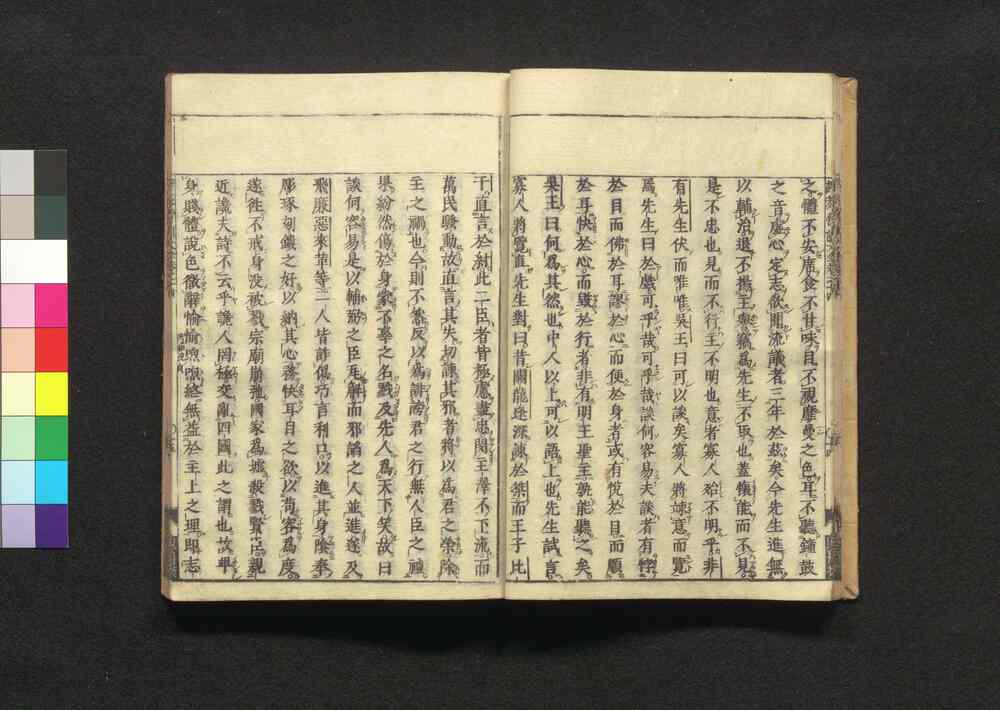 之體不安席食不甘味目不視靡曼之色耳不聽鐘鼓
之音虛心定志欲聞流議者三年於茲矣今先生進無
以輔治退不揚主譽竊爲先生不取也蓋懷能而不見
是不忠也見而不行主不明也意者寡人殆不明乎非
有先生伏而唯唯吳王曰可以談矣寡人將竦意而覽
焉先生曰於戲可乎哉可乎哉談何容易夫談者有悖
於目而佛於耳謬於心而便於身者或有悅於目而順
於耳快於心而毀於行者非有明王聖主孰能聽之矣
吳王曰何爲其然也中人以上可以語上也先生試言
寡人將覽焉先生對曰昔關龍逄深諫於桀而王子比
干直言於紂此二臣者皆極慮盡忠閔主澤不下流而
萬民騷動故直言其失切諫其邪者將以爲君之榮除
主之禍也今則不然反以爲誹謗君之行無人臣之禮
果紛然傷於身蒙不辜之名戮及先人爲天下笑故曰
談何容易是以輔弼之臣瓦解而邪諂之人並進遂及
飛廉惡來革等三人皆詐僞巧言利口以進其身陰奉
彫琢刻鏤之好以納其心務快耳目之欲以苟容爲度
遂往不戒身沒被戮宗廟崩弛國家爲墟殺戮賢臣親
近讒夫詩不云乎讒人罔極交亂四國此之謂也故卑
身賤體說色微辭愉愉煦煦終無益於主上之理卽志